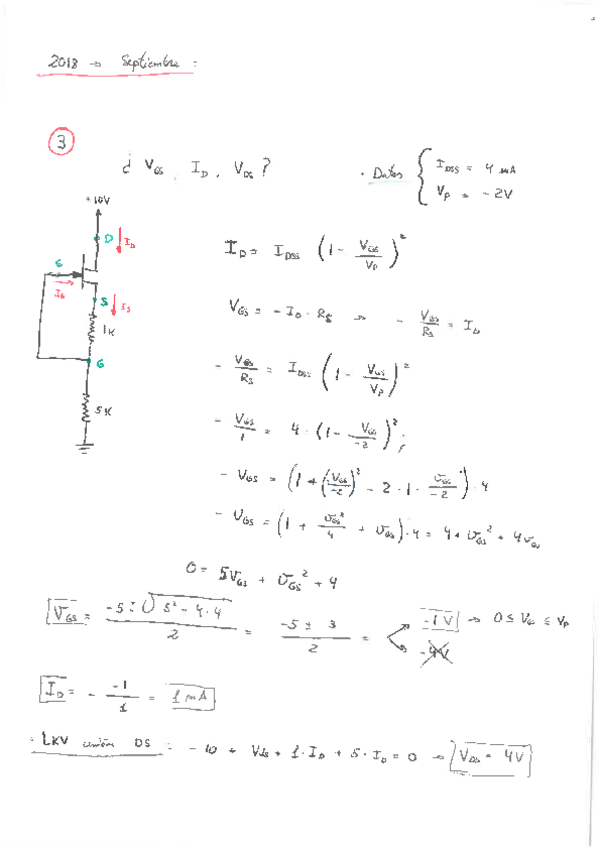 2018 → Septiembre :
3
¿ VGS , ID , VDS ?
· Datos { IDSS = 4 mA
VP = -2V
+10V
D
ID
G
IG
S
IS
1K
G
5K
ID = IDSS (1 - VGS/VP)²
VGS = - ID · RS → - VGS/RS = ID
- VGS/RS = IDSS (1 - VGS/VP)²
- VGS/1 = 4 · (1 - VGS/-2)² ;
- VGS = (1 + (VGS/-2)² - 2 · 1 · VGS/-2) · 4
- VGS = (1 + VGS²/4 + VGS) · 4 = 4 + VGS² + 4VGS
0 = 5VGS + VGS² + 4
VGS = (-5 ± √(5² - 4·4))/2 = (-5 ± 3)/2 = -1V → 0 ≤ VGS ≤ VP
-4V
ID = - -1/1 = 1 mA
· LKV DS = - 10 + VDS + 1 · ID + 5 · ID = 0 → VDS = 4V